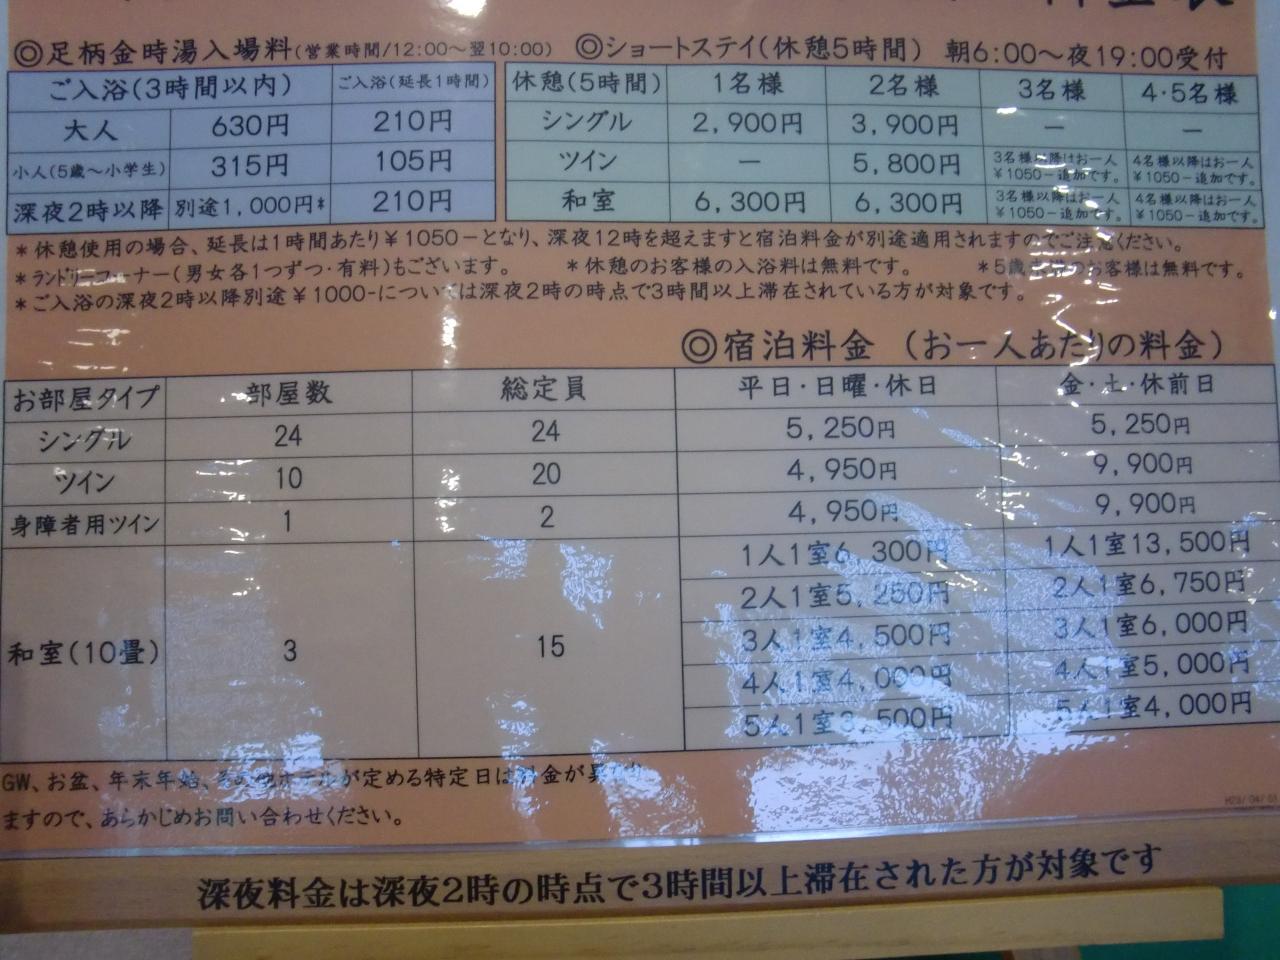 ◎足柄金時湯入場料(営業時間/12:00～翌10:00)
ご入浴(3時間以内) ご入浴(延長1時間)
大人 630円 210円
小人(5歳～小学生) 315円 105円
深夜2時以降 別途1,000円* 210円
◎ショートステイ(休憩5時間) 朝6:00～夜19:00受付
休憩(5時間) 1名様 2名様 3名様 4・5名様
シングル 2,900円 3,900円 － －
ツイン － 5,800円 3名様以降はお一人¥1050－追加です。 4名様以降はお一人¥1050－追加です。
和室 6,300円 6,300円 3名様以降はお一人¥1050－追加です。 4名様以降はお一人¥1050－追加です。
*休憩使用の場合、延長は1時間あたり¥1050－となり、深夜12時を超えますと宿泊料金が別途適用されますのでご注意ください。
*ランドリーコーナー(男女各1つずつ・有料)もございます。 *休憩のお客様の入浴料は無料です。 *5歳のお客様は無料です。
*ご入浴の深夜2時以降別途¥1000-については深夜2時の時点で3時間以上滞在されている方が対象です。
◎宿泊料金 (お一人あたりの料金)
お部屋タイプ 部屋数 総定員 平日・日曜・休日 金・土・休前日
シングル 24 24 5,250円 5,250円
ツイン 10 20 4,950円 9,900円
身障者用ツイン 1 2 4,950円 9,900円
和室(10畳) 3 15
1人1室6,300円 1人1室13,500円
2人1室5,250円 2人1室6,750円
3人1室4,500円 3人1室6,000円
4人1室4,000円 4人1室5,000円
5人1室3,500円 5人1室4,000円
GW、お盆、年末年始、その他ホテルが定める特定日は料金が異なり
ますので、あらかじめお問い合わせください。
深夜料金は深夜2時の時点で3時間以上滞在された方が対象です